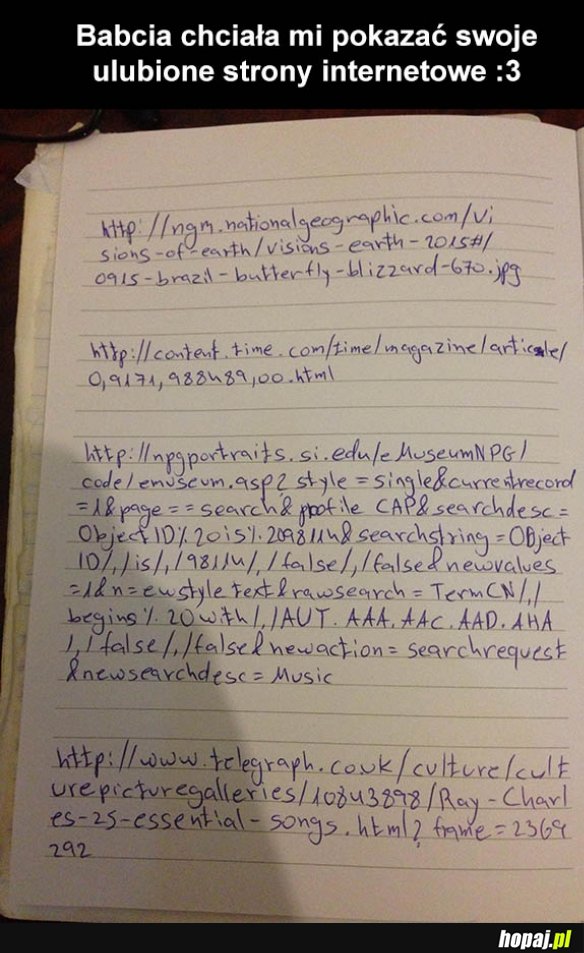 Babcia chciała mi pokazać swoje
ulubione strony internetowe :3
http://ngm.nationalgeographic.com/vi
sions-of-earth/visions-earth-2015#/
0915-brazil-butterfly-blizzard-670.jpg
http://content.time.com/time/magazine/article/
0,9171,988489,00.html
http://npgportraits.si.edu/eMuseumNPG/
code/emuseum.asp? style=single&currentrecord
=1&page==search& profile CAP&searchdesc=
Object ID%20is%2098114&searchstring=OBject
ID/,/is/,/98114/,/false/,/false&newvalues
=1&n=ewstyle text&rawsearch=TermCN/,/
begins%20with/,/AUT.AAA.AAC.AAD.AHA
/,/false/,/false&newaction=searchrequest
&newsearchdesc=Music
http://www.telegraph.co.uk/culture/cult
urepicturegalleries/10843898/Ray-Charl
es-25-essential-songs.html? frame=2369
292
hopaj.pl